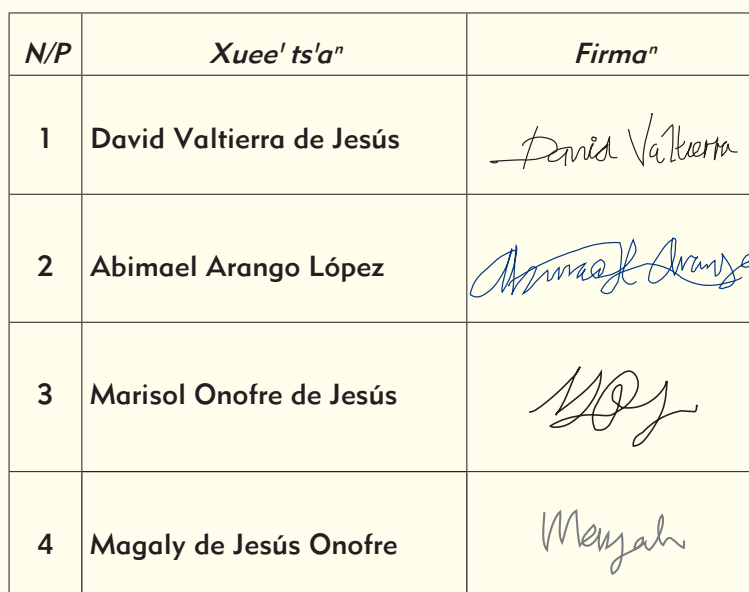 N/P Xueeꞌ tsꞌaⁿ Firmaⁿ
1 David Valtierra de Jesús David Valtierra
2 Abimael Arango López Abimael Arango
3 Marisol Onofre de Jesús
4 Magaly de Jesús Onofre